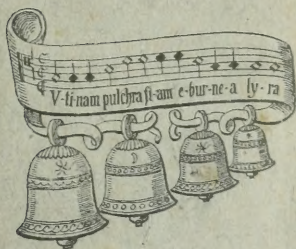 V-ti-nam pulchra fi-am e-bur-ne-a ly-ra